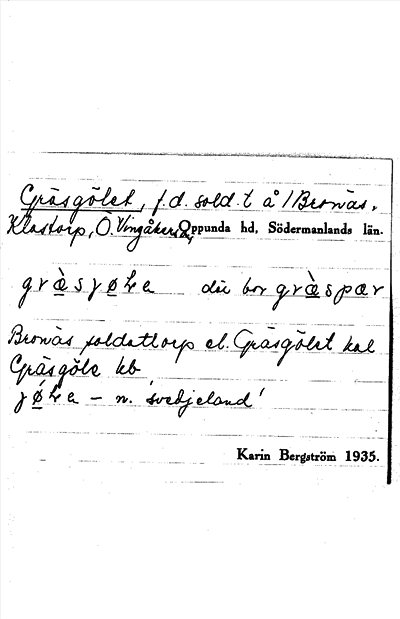 Gräsgölet, f.d. sold.t å/Bronäs,
Klastorp, Ö. Vingåkers sn, Oppunda hd, Södermanlands län.
græ̀sjøLe där bor græ̀spær
Bronäs soldattorp el. Gräsgölet kal
Gräsgöle kb
jǿLe – n. 'svedjeland'
Karin Bergström 1935.